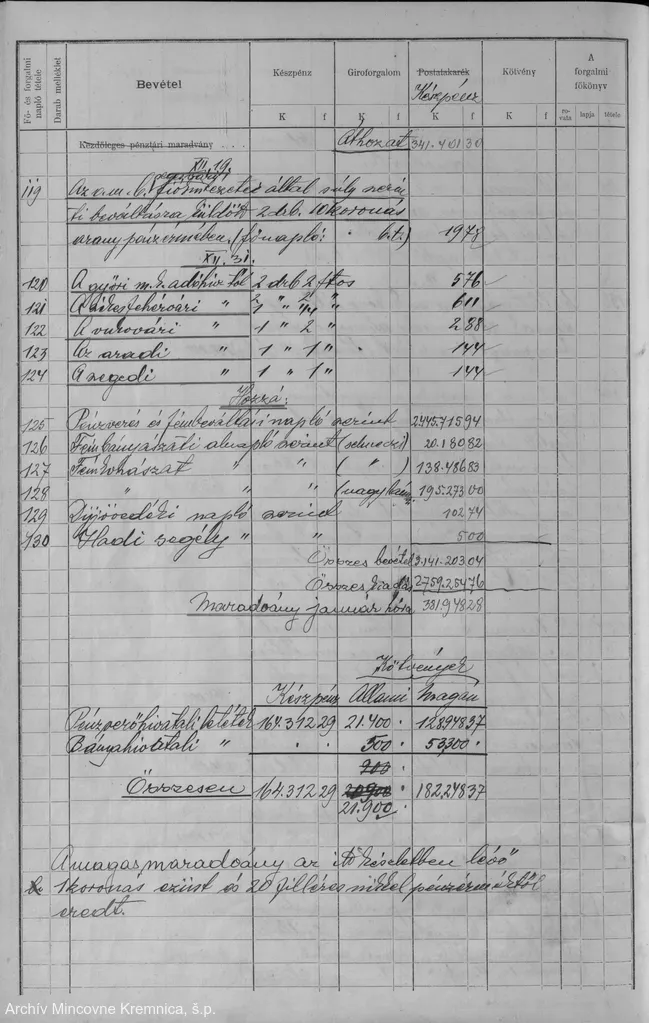 Fő- és forgalmi napló tétele
Darab melléklet
Bevétel
Készpénz
Giroforgalom
Postatakarék
Készpénz
Kötvény
A forgalmi főkönyv
K f K f K f K f rovata lapja tétele
Kezdőleges pénztári maradvány Áthozat 341.401 30
XII. 19.
119 Az o. m. b. fiókintézetei által súly szerin
ti beváltásra küldött 2 drb. 10 koronás
arany pénzérmében (főnapló: b.t.) 1978
XII. 31.
120 A győri m. k. adóhiv.tól 2 drb 2 ftos 576
121 A székesfehérvári " 611
122 A vukovári " 1 " 2 " 288
123 Az aradi " 1 " 1 " 144
124 A szegedi " 1 " 1 " 144
Hozzá:
125 Pénzverés és fémbeváltási napló szerint 2445.715 94
126 Fémbányászati alnapló szerint (selmeczi) 20.180 82
127 Fémkohászat " " ( " ) 138.486 83
128 " " " (nagybány 195.273 00
129 Díjjövedéki napló szerint 102 74
130 Hadi segély " " 500
Összes bevétel 3.141.203 04
Összes kiadás 2759.254 76
Maradvány január hóra 381.948 28
Kötvények
Készpénz Állami Magán
Pénzverőhivatali letétek 164.312 29 21.400 . 128948 37
Bányahivatali " . . 500 . 53,300 .
Összesen 164.312 29 182.248 37
21.900
A magas maradvány az itt készletben lévő
1 koronás ezüst és 20 filléres nikkel pénzérméktől
eredt.
Archív Mincovne Kremnica, š.p.